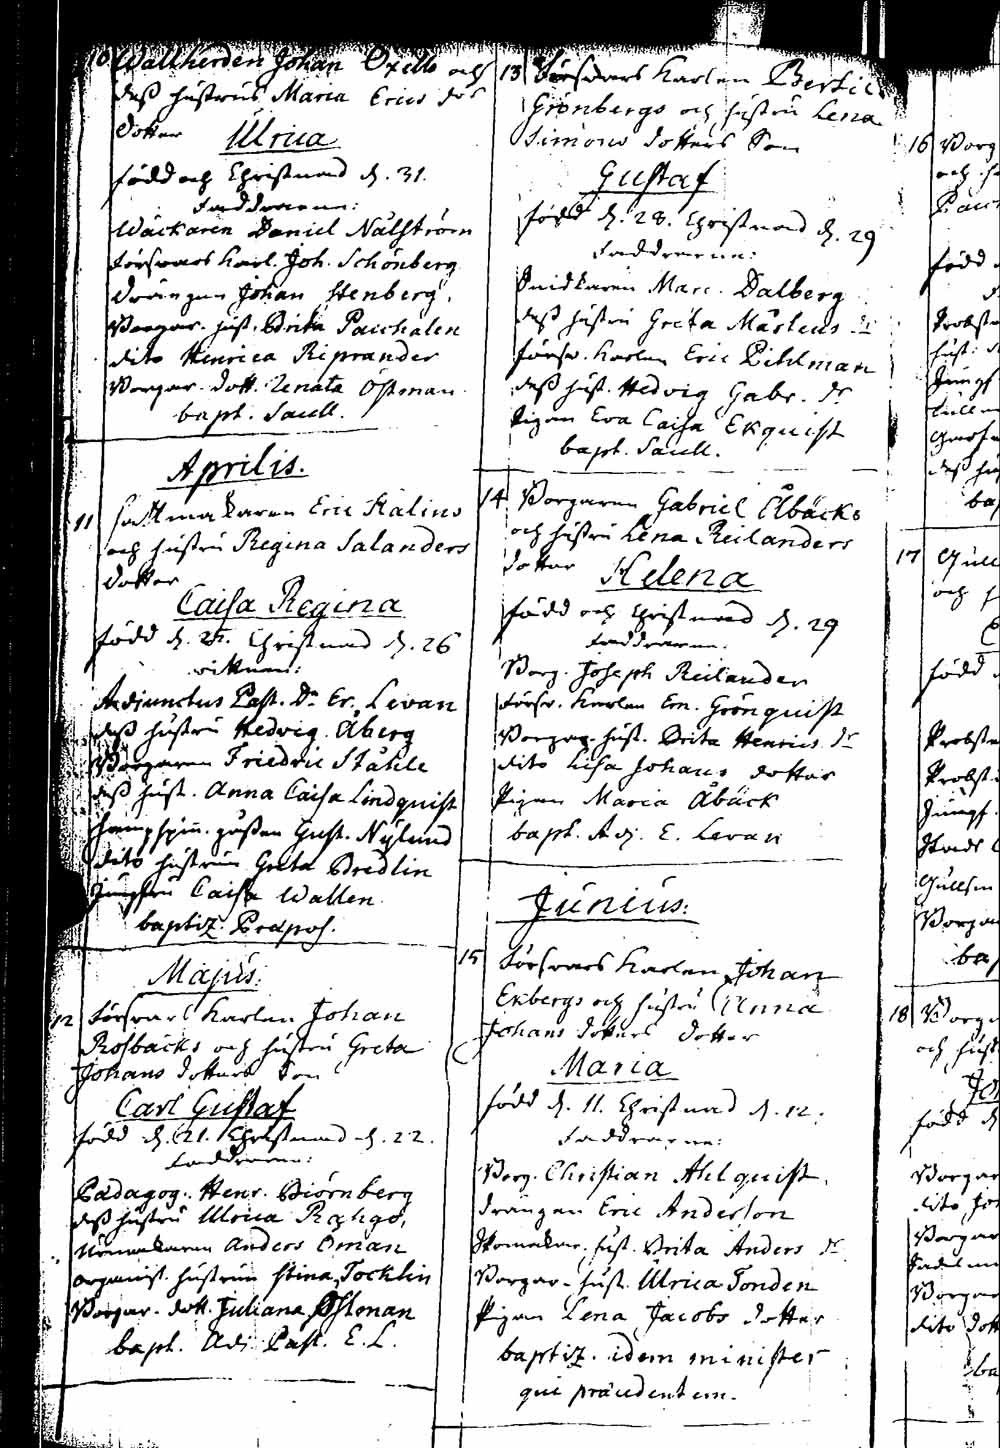 10 Wallherden Johan Oxells och
dess hustrus Maria Erics dr
dotter Ulrica
född och Christnad d. 31.
Faddrarne:
Wäckaren Daniel Nälström
försvars karl. Joh. Schönberg
drängen Johan Stenberg,
Borgar. hust. Brita Paschalen
dito Henrica Riprander
Borgar. dott. Renata Östman
bapt. Sacell.
Aprilis.
11 Hattmakaren Eric Stalins
och hustru Regina Salanders
dotter
Caisa Regina
född d. 25. Christnad d. 26
vittnen:
Adjunctus Past. Dn Er. Levan
dess hustru Hedvig Åberg
Borgaren Friedric Ståhle
dess hust. Anna Caisa Lindquist
Hampspin. gossen Gust. Nylund
dito hustrun Greta Bredlin
Jungfru Caisa Wallen
baptiz. Præpos.
Majus.
12 Försvars karlen Johan
Rosbäcks och hustru Greta
Johans dotters Son
Carl Gustaf
född d. 21. Christnad d. 22.
Faddrarne:
Pædagog. Henr. Biörnberg
dess hustru Ulrica
Urmakaren Anders Öman
organist. hustrun Stina Tocklin
Borgar. dott. Juliana Östman
bapt. Adj. Past. E. L.
13 Försvars karlen Bertil
Grönbergs och hustru Lena
Simons dotters Son
Gustaf
född d. 28. Christnad d. 29
Faddrarne:
Snidkaren Marc. Dalberg
dess hustru Greta Mårtens dr
försv. karlen Eric Pihlman
dess hust. Hedvig Gabr. dr
Pigan Eva Caisa Ekquist
bapt. Sacell.
14 Borgaren Gabriel Åbäcks
och hustru Lena Reilanders
dotter Helena
född och Christnad d. 29
Faddrarne:
Borg. Joseph Reilander
försv. karlen Em. Grönquist
Borgar. hust. Brita Henrics dr
dito Lisa Johans dotter
Pigan Maria Åbäck
bapt. Adj. E. Levan
Junius:
15 Försvars karlen Johan
Ekbergs och hustru Anna
Johans dotters dotter
Maria
född d. 11. Christnad d. 12.
Faddrarne:
Borg. Christian Ahlquist.
drängen Eric Anderson
Skomakar. hust. Brita Anders dr
Borgar. hust. Ulrica Tonden
Pigan Lena Jacobs dotter
baptiz. idem minister
qui præcedentem.
16 Borg
och
född
Probst
hust.
Jungf
dess hu
bap
17 Gull
och
född
Probst
Probst
Jungf.
Gullsm
Borgar
bap
18 Borg
och hust
Jo
född d
Borgar
dito
Borgar
Borgar
dito dott
ba